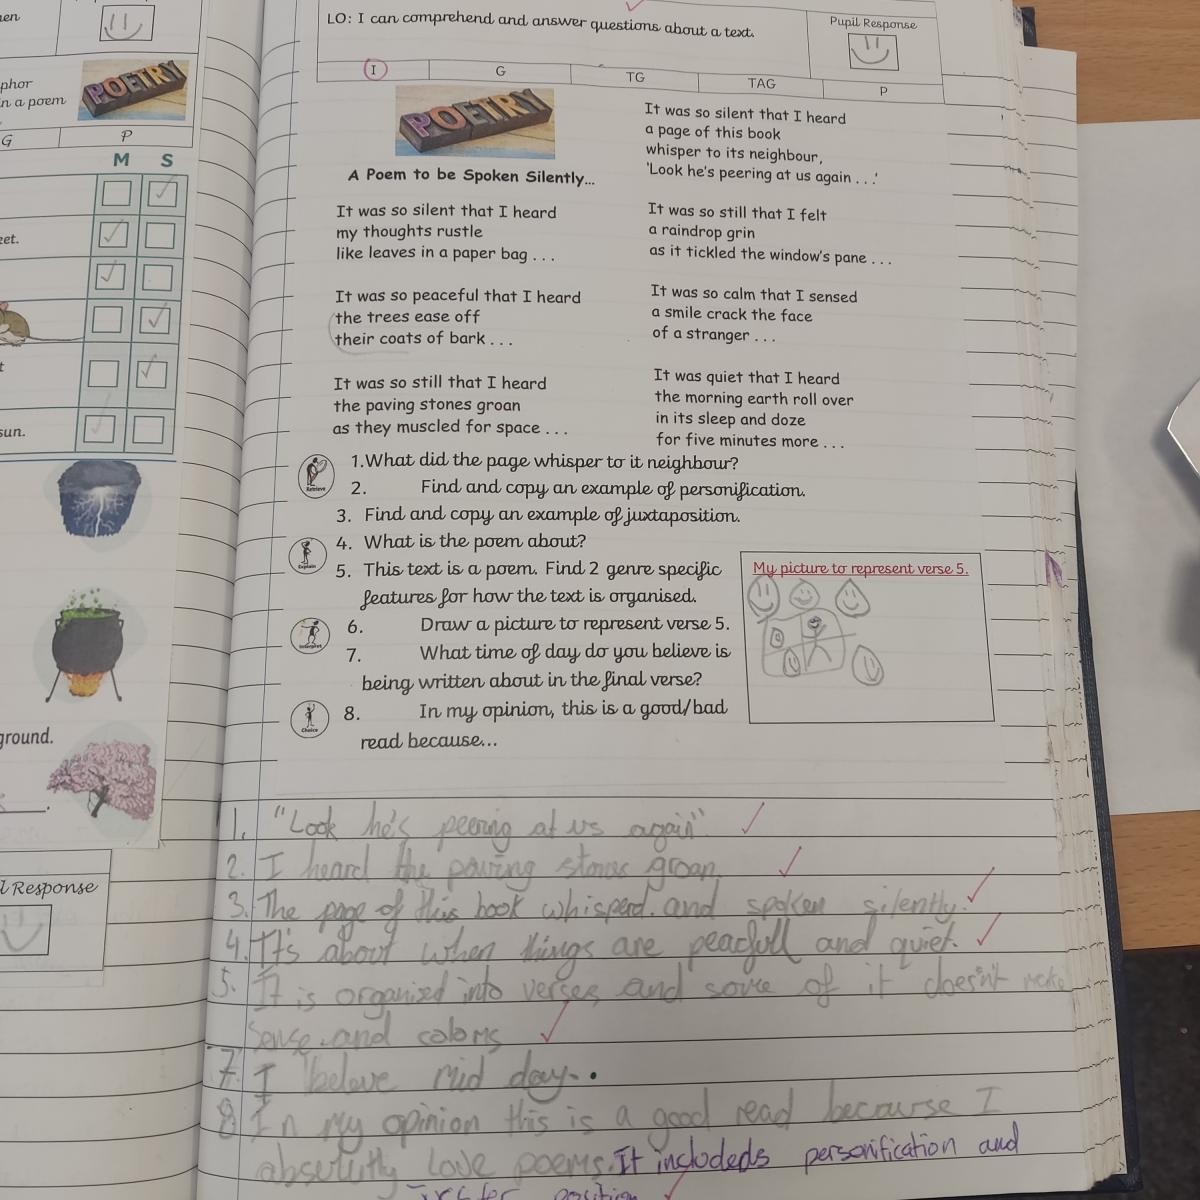 en
phor
n a poem
POETRY
G P
M S
eet.
t
sun.
ground.
l Response
LO: I can comprehend and answer questions about a text.
Pupil Response
I G TG TAG P
POETRY
A Poem to be Spoken Silently...
It was so silent that I heard
my thoughts rustle
like leaves in a paper bag . . .
It was so peaceful that I heard
the trees ease off
their coats of bark . . .
It was so still that I heard
the paving stones groan
as they muscled for space . . .
It was so silent that I heard
a page of this book
whisper to its neighbour,
'Look he's peering at us again . . .'
It was so still that I felt
a raindrop grin
as it tickled the window's pane . . .
It was so calm that I sensed
a smile crack the face
of a stranger . . .
It was quiet that I heard
the morning earth roll over
in its sleep and doze
for five minutes more . . .
Retrieve
1.What did the page whisper to it neighbour?
2. Find and copy an example of personification.
3. Find and copy an example of juxtaposition.
Explain
4. What is the poem about?
5. This text is a poem. Find 2 genre specific
features for how the text is organised.
Interpret
6. Draw a picture to represent verse 5.
7. What time of day do you believe is
being written about in the final verse?
Choice
8. In my opinion, this is a good/bad
read because...
My picture to represent verse 5.
1. "Look he's peering at us again".
2. I heard the paving stones groan.
3. The page of this book whisperd. and spoken silently.
4. It's about when things are peacfull and quiet.
5. It is organised into verses and some of it doesn't make
sense. and colons
7. I beleve mid day.
8 In my opinion this is a good read becaurse I
absolutly love poems. It includeds personification and
position